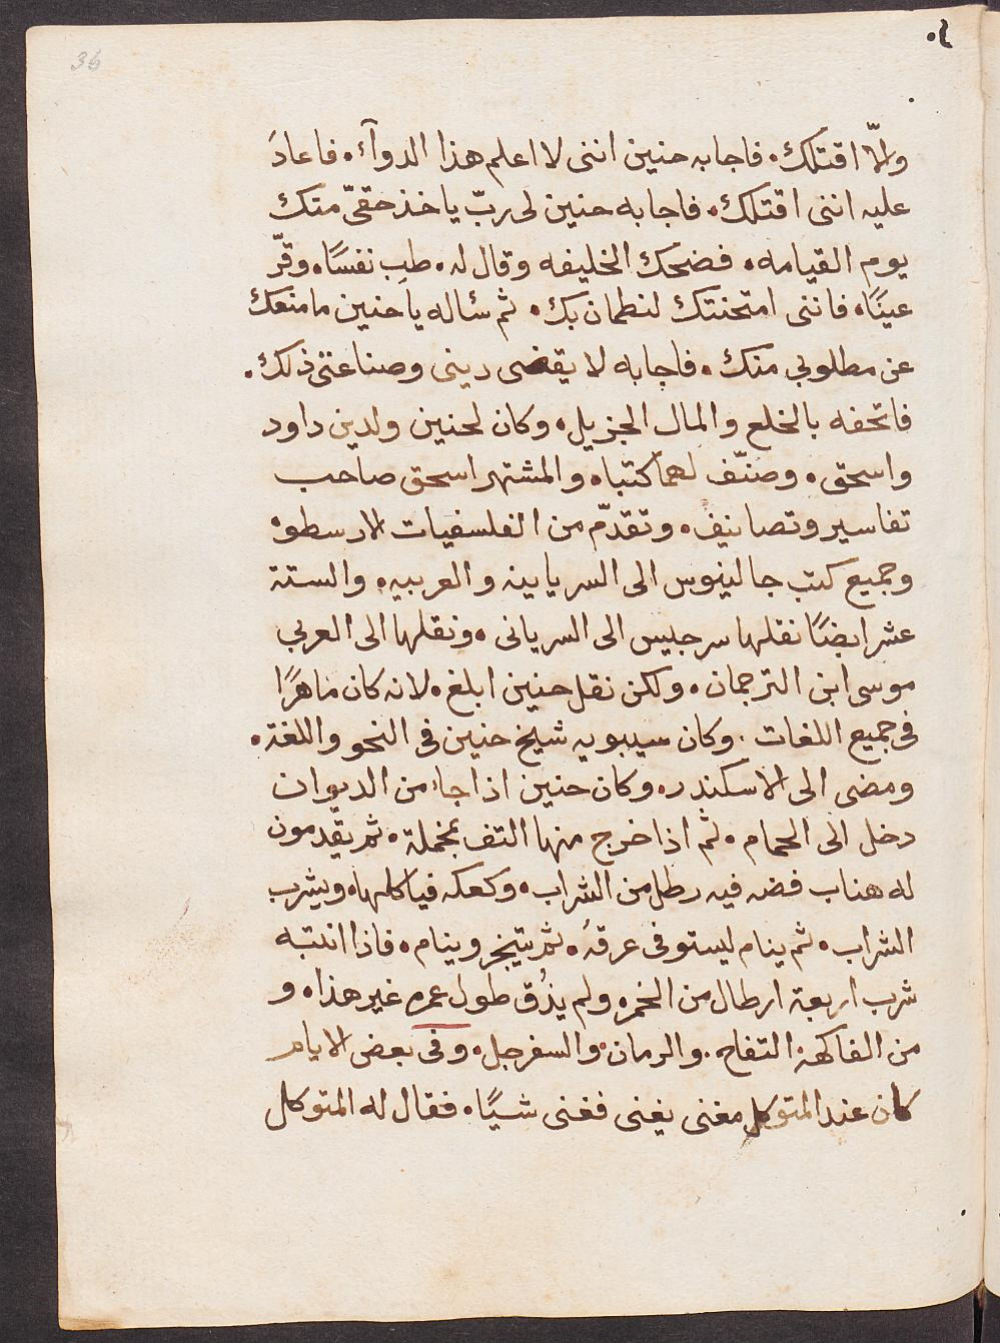 36
والّا اقتلك. فاجابه حنين انني لا اعلم هذا الدوآء. فاعادَ
عليه انني اقتلك. فاجابه حنين لي ربّ ياخذ حقيّ منك
يوم القيامه. فضحك الخليفه وقال له. طِب نفسًا. وقّر
عينًا. فانني امتحنتك لنطمان بك. ثم سئاله يا حنين ما منعك
عن مطلوبي منك. فاجابه لا يقضي ديني وصناعتي ذلك.
فاتحفه بالخلع والمال الجزيل. وكان لحنين ولدين داود
واسحق. وصنّف لهما كتبا. والمشتهر اسحق صاحب
تفاسير وتصانيف. وتقدّم من الفلسفيات لارسطو.
وجميع كتب جالينوس الى السريانيه والعربيه. والستة
عشر ايضًا نقلها سرجيس الى السرياني. ونقلها الى العربي
موسى ابن الترجمان. ولكن نقل حنين ابلغ. لانه كان ماهرًا
في جميع اللغات. وكان سيبويه شيخ حنين في النحو واللغة.
ومضى الى الاسكندر. وكان حنين اذا جاء من الديوان
دخل الى الحمام. ثم اذا خرج منها التف بمخملة. ثم يقّدمون
له هناب فضه فيه رطل من الشراب. وكعكه فياكلها. ويشرب
الشراب. ثم ينام ليستوفي عرقهُ. ثم يتبخر وينام. فاذا انتبه
شرب اربعة ارطال من الخمر. ولم يذُق طول عمره غير هذا. و
من الفاكهة التفاح. والرمان. والسفرجل. وفي بعض الايام
كان عند المتوكل مغني يغني فغنى شيًا. فقال له المتوكل